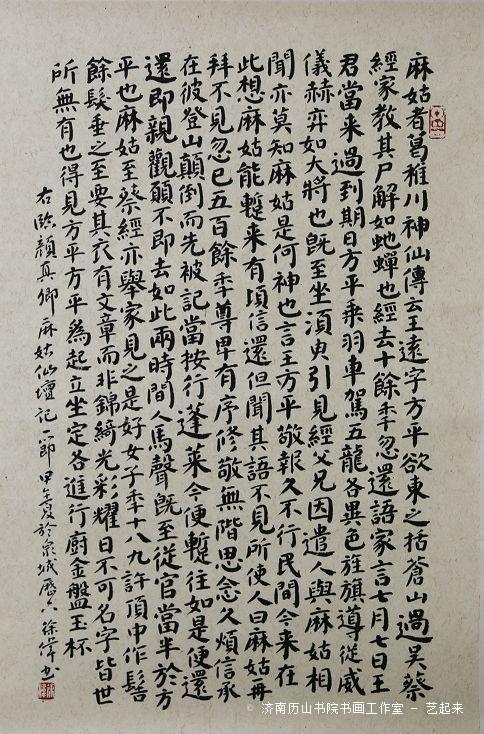 麻姑者葛稚川神仙傳云王遠字方平欲東之括蒼山過吳蔡
經家教其尸解如虵蟬也經去十餘年忽還語家言七月七日王
君當来過到期日方平乘羽車駕五龍各異色旌旗導從威
儀赫弈如大將也既至坐須臾引見經父兄因遣人與麻姑相
聞亦莫知麻姑是何神也言王方平敬報久不行民間今来在
此想麻姑能蹔来有頃信還但聞其語不見所使人曰麻姑再
拜不見忽已五百餘年尊卑有序修敬無階思念久煩信承
在彼登山顛倒而先被記當按行蓬萊今便蹔往如是便還
還即親觀願不即去如此兩時間人馬聲既至從官當半於方
平也麻姑至蔡經亦舉家見之是好女子年十八九許頂中作髻
餘髮垂之至要其衣有文章而非錦綺光彩耀日不可名字皆世
所無有也得見方平方平為起立坐定各進行廚金盤玉杯
右臨顏真卿麻姑仙壇記一節甲午夏於泉城歷下徐偉书
© 济南历山书院书画工作室 - 艺起来